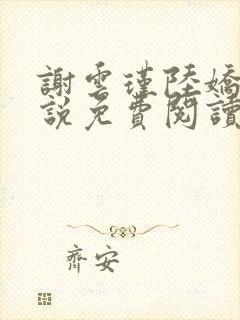 謝雲瑾陸嬌
說免費閱讀
齊安